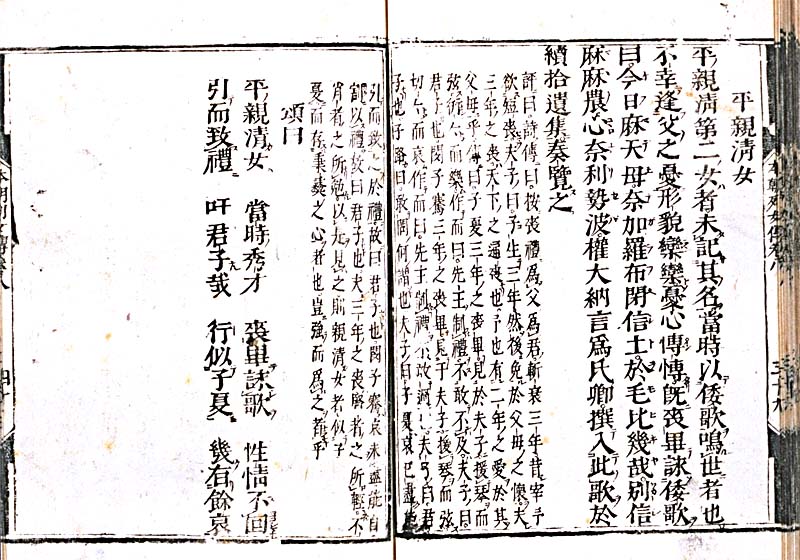 平親清女
平親清第二女者未記其名當時以倭歌鳴世者也
不幸逢父之憂形貌欒欒憂心傳傳旣喪畢詠倭歌
曰今日麻天母奈加羅布閉信土於毛比幾哉別信
麻麻農心奈利勢波權大納言爲氏卿撰入此歌於
續拾遺集奏覽之
評曰詩傳曰按喪禮爲父爲君斬衰三年昔宰予
欲短喪夫子曰子生三年然後免於父母之懷夫
三年之喪天下之通喪也予也有三年之愛於其
父母乎傳曰子夏三年之喪畢見於夫子援琴而
弦衎衎而樂作而曰先王制禮不敢不及夫子曰
君子也閔子騫三年之喪畢見于夫子援琴而弦
切切而哀作而曰先王制禮不敢過也夫子曰君
子也子路曰敢問何謂也夫子曰子夏哀已盡能
引而致之於禮故曰君子也閔子騫哀未盡能自
割以禮故曰君子也夫三年之喪賢者之所輕不
肖者之所勉以是見之則親清女者似子
夏而存秉彝之心者也豈強而爲之者乎
頌曰
平親清女 當時秀才 喪畢詠歌 性情不回
引而致禮 吁君子哉 行似子夏 幾有餘哀
本朝列女傳卷八